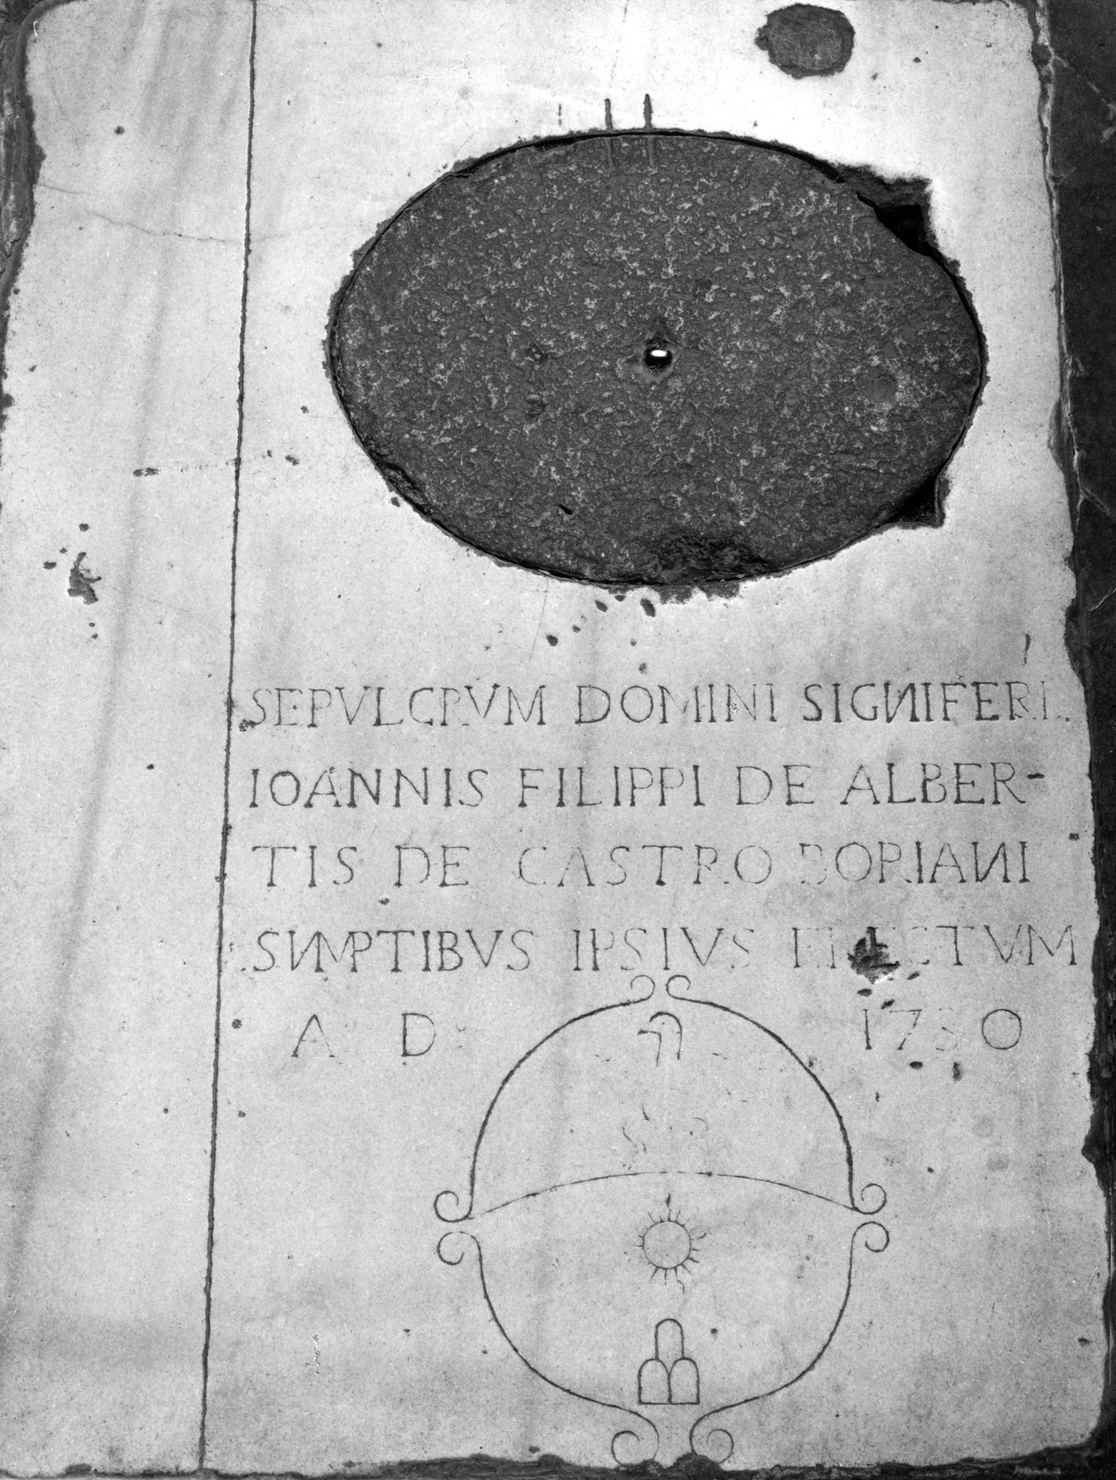 SEPVLCRVM DOMINI SIGNIFERI
IOANNIS FILIPPI DE ALBER-
TIS DE CASTRO BORIANI
SVMPTIBVS IPSIVS ERECTVM
A D 1730